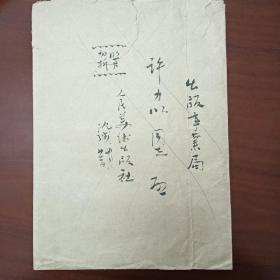 出版事业局
许力以同志 启
人民美术出版社
沈
照片
勿折